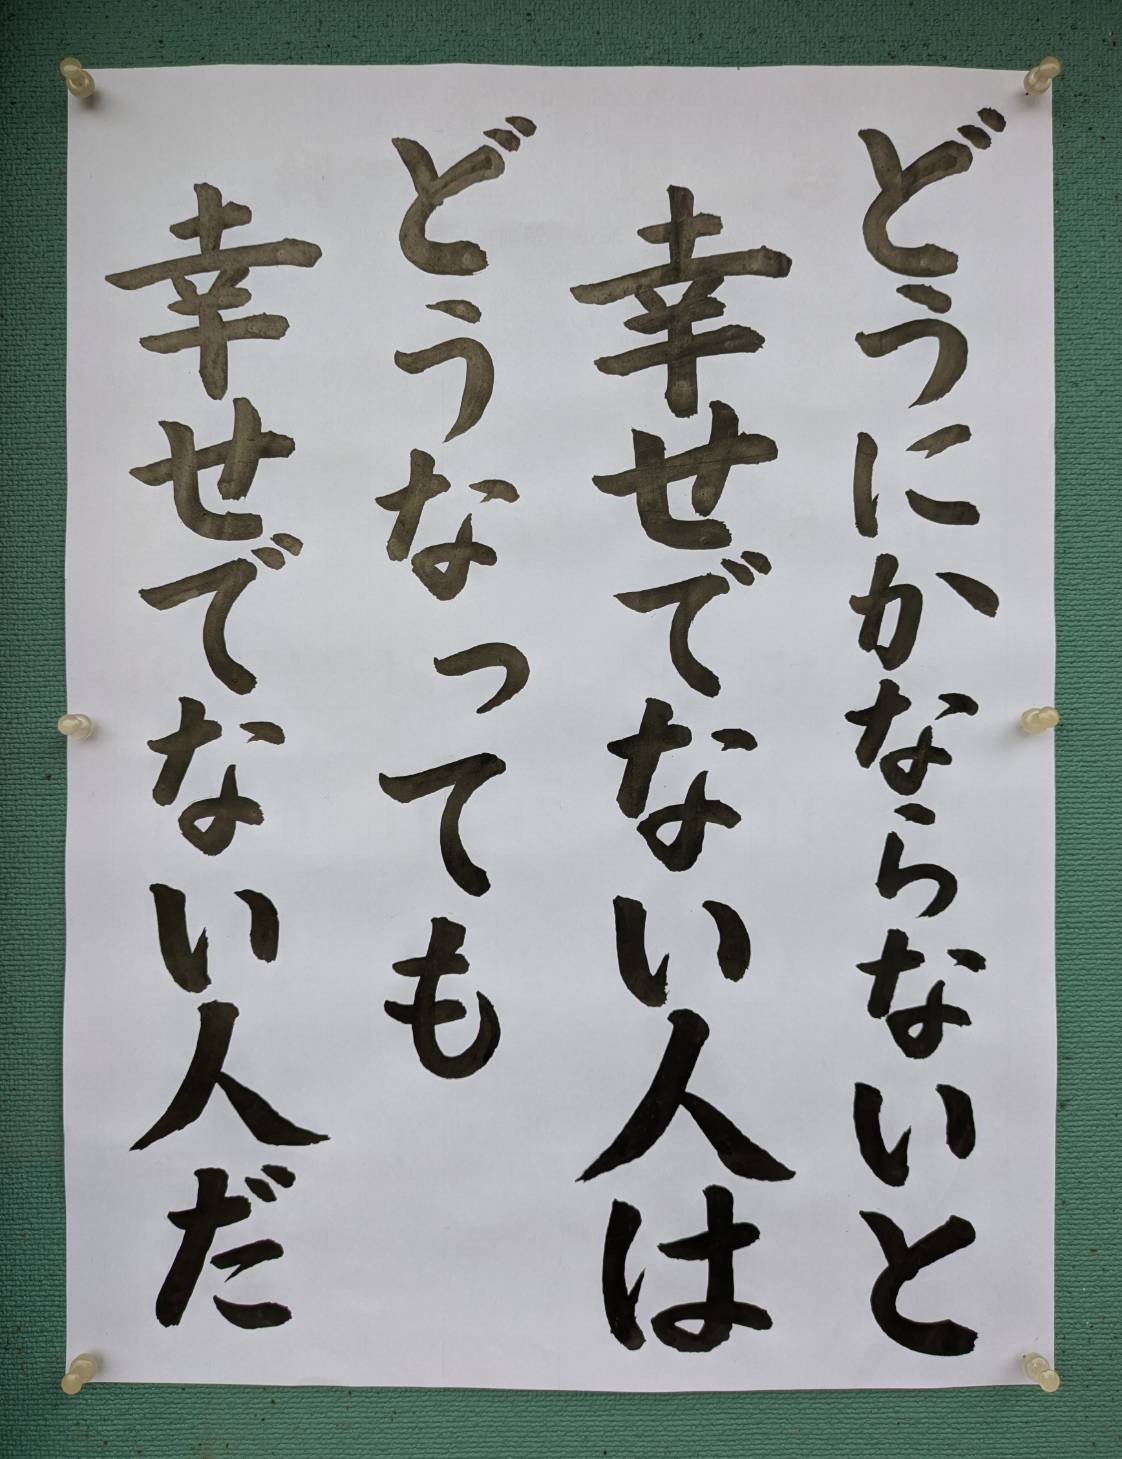 どうにかならないと
幸せでない人は
どうなっても
幸せでない人だ